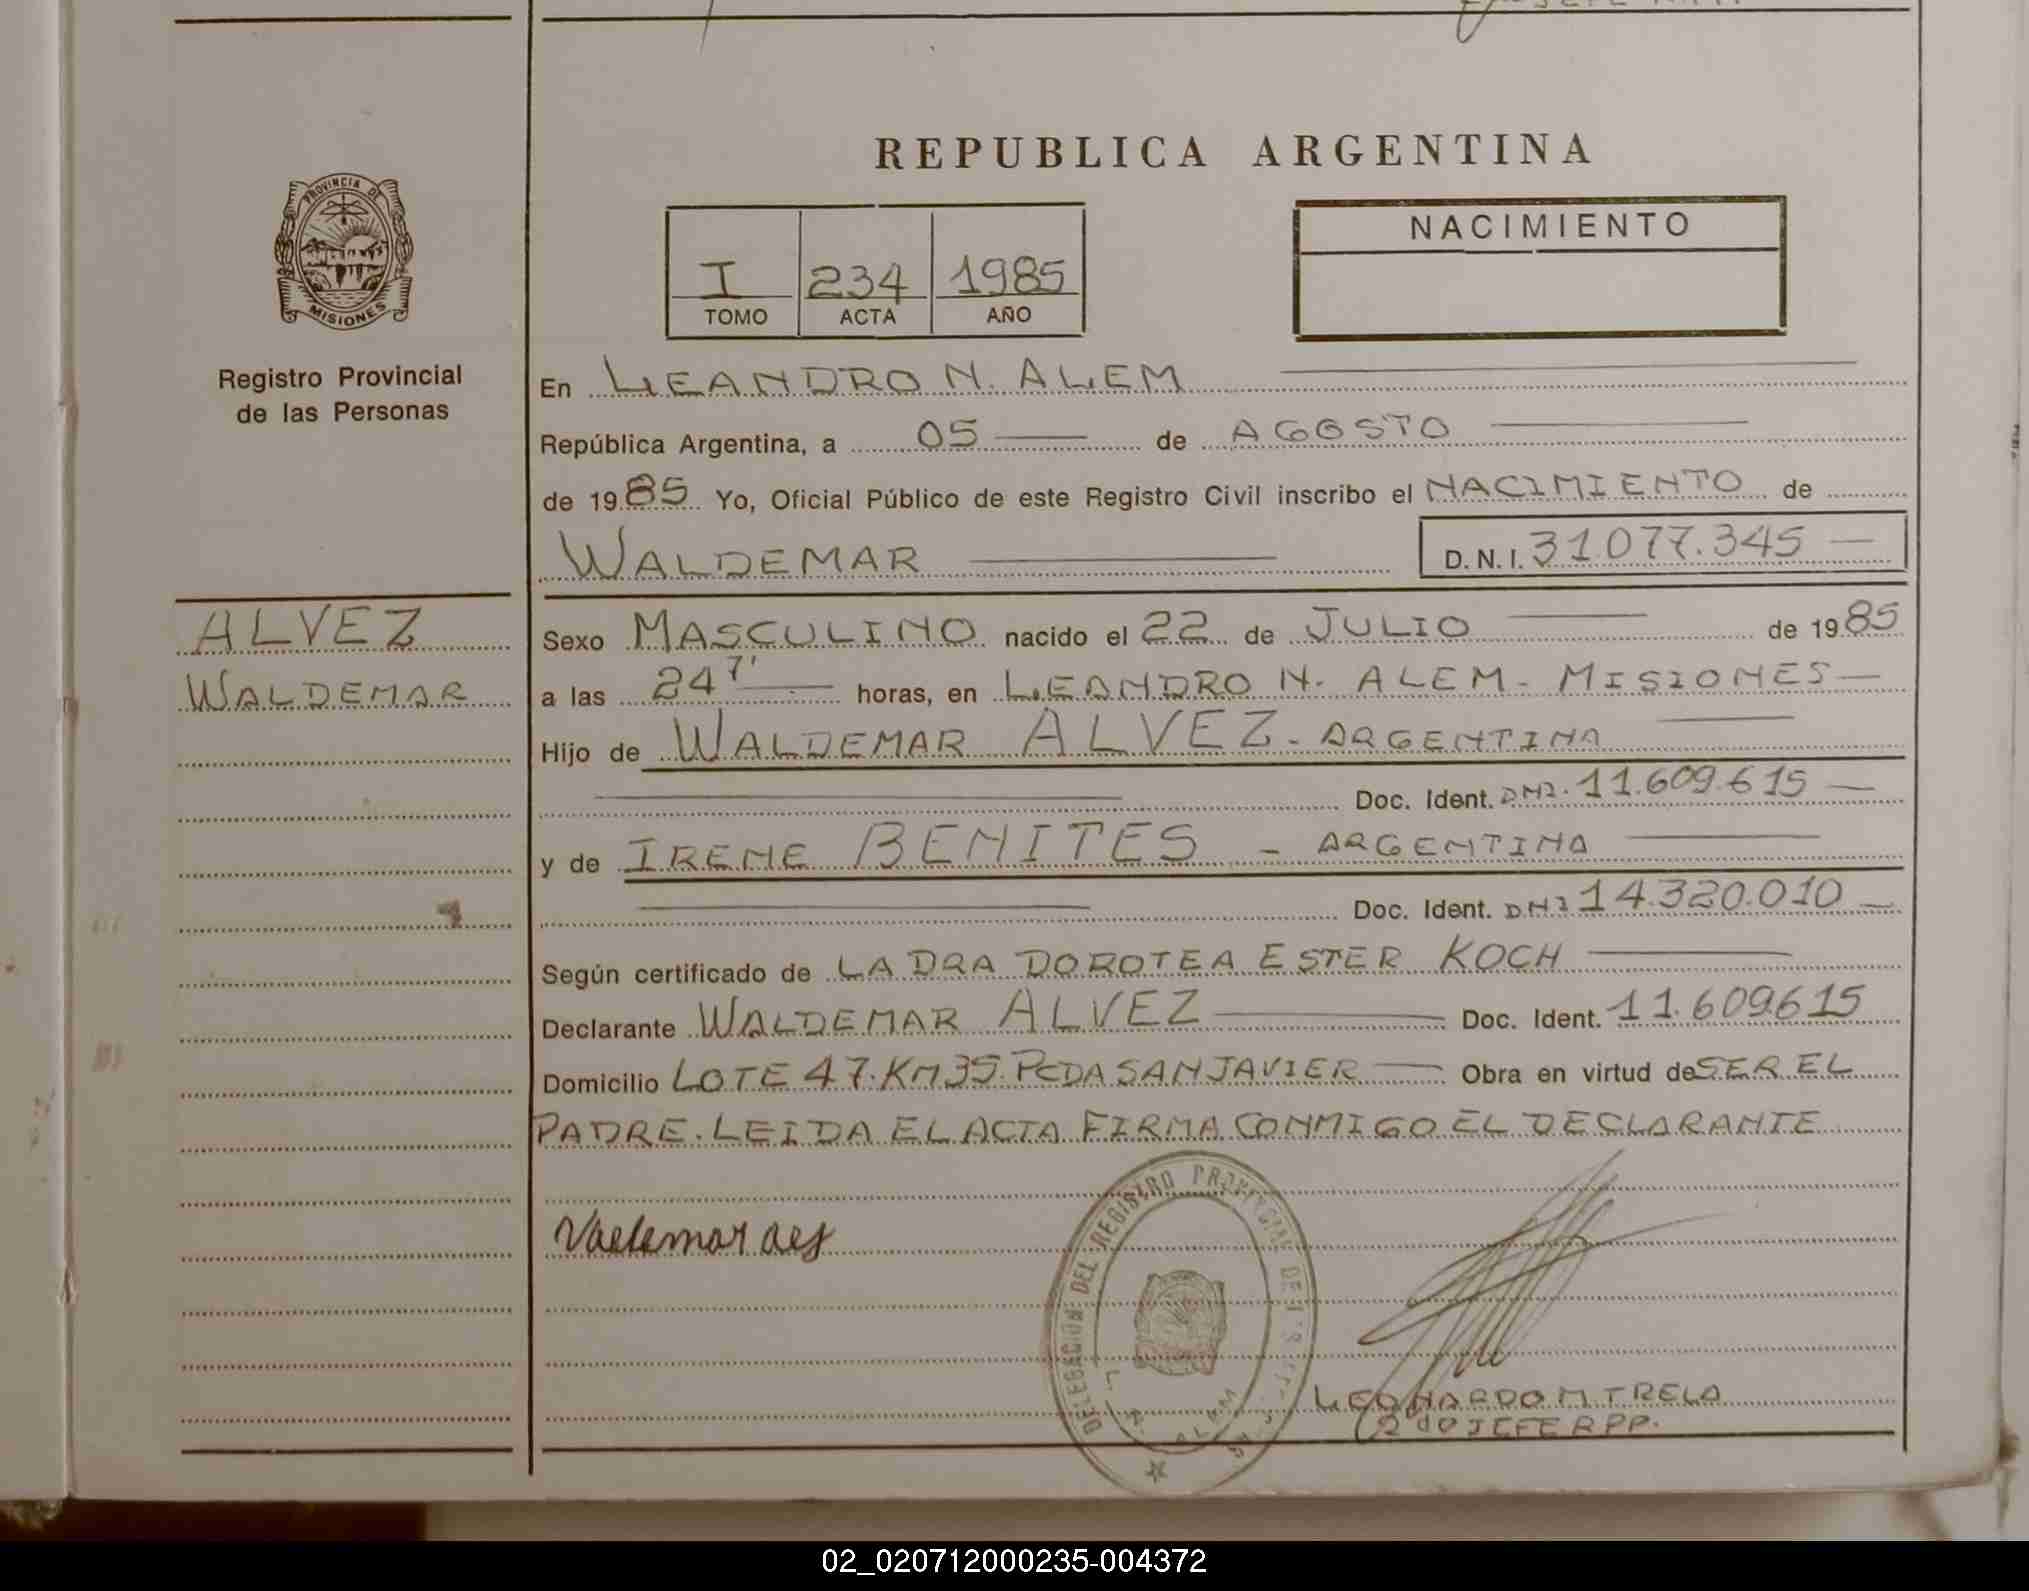 REPUBLICA ARGENTINA
PROVINCIA DE
MISIONES
NACIMIENTO
I 234 1985
TOMO ACTA AÑO
Registro Provincial
de las Personas
En LEANDRO N. ALEM
República Argentina, a 05 de AGOSTO
de 1985 Yo, Oficial Público de este Registro Civil inscribo el NACIMIENTO de
WALDEMAR D.N.I. 31.077.345
ALVEZ
WALDEMAR
Sexo MASCULINO nacido el 22 de JULIO de 1985
a las 24 7' horas, en LEANDRO N. ALEM - MISIONES
Hijo de WALDEMAR ALVEZ - ARGENTINA
Doc. Ident. DNI. 11.609.615
y de IRENE BENITES - ARGENTINA
Doc. Ident. DNI 14.320.010
Según certificado de LA DRA DOROTEA ESTER KOCH
Declarante WALDEMAR ALVEZ Doc. Ident. 11.609615
Domicilio LOTE 47. KM35. PCDA SAN JAVIER Obra en virtud de SER EL
PADRE. LEIDA EL ACTA FIRMA CONMIGO EL DECLARANTE
DELEGACION DEL REGISTRO PROVINCIAL DE
L. N. ALEM
LEONARDO M TRELA
2do JEFE RPP.
02_020712000235-004372